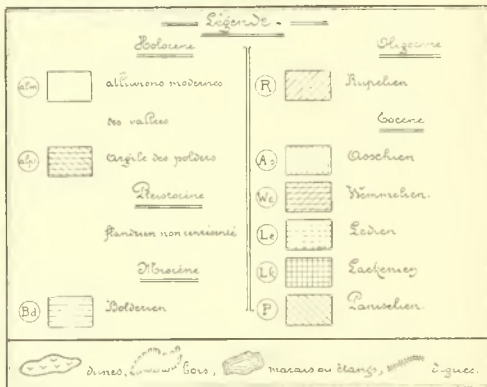 Légende
Holocène
alm alluvions modernes
des vallées
alp Argile des polders
Pleistocène
flandrien non représenté
Miocène
Bd Bolderien
Oligocène
R Rupelien
Eocene
As Asschien
We Wemmelien
Le Ledien
Lk Laekenien
P Paniselien
dunes, bois, marais ou étangs, digues.